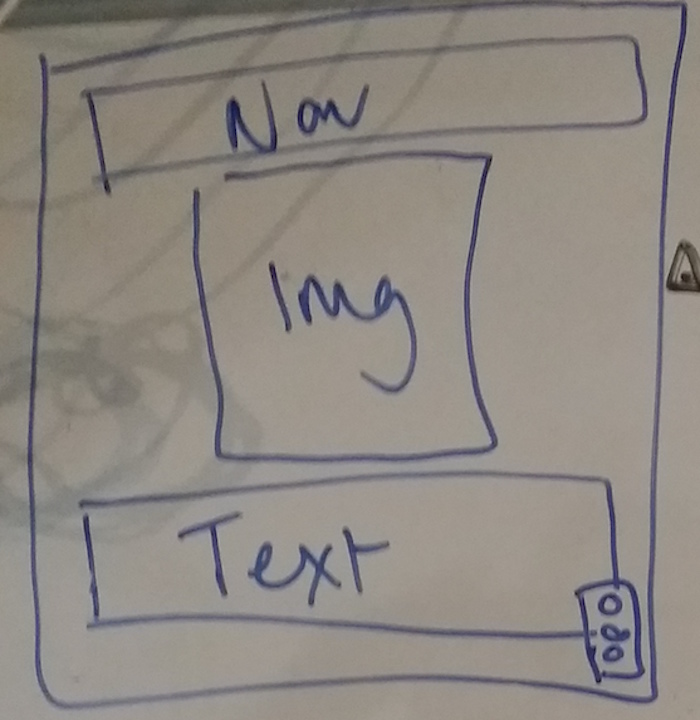 Nav
Img
Text